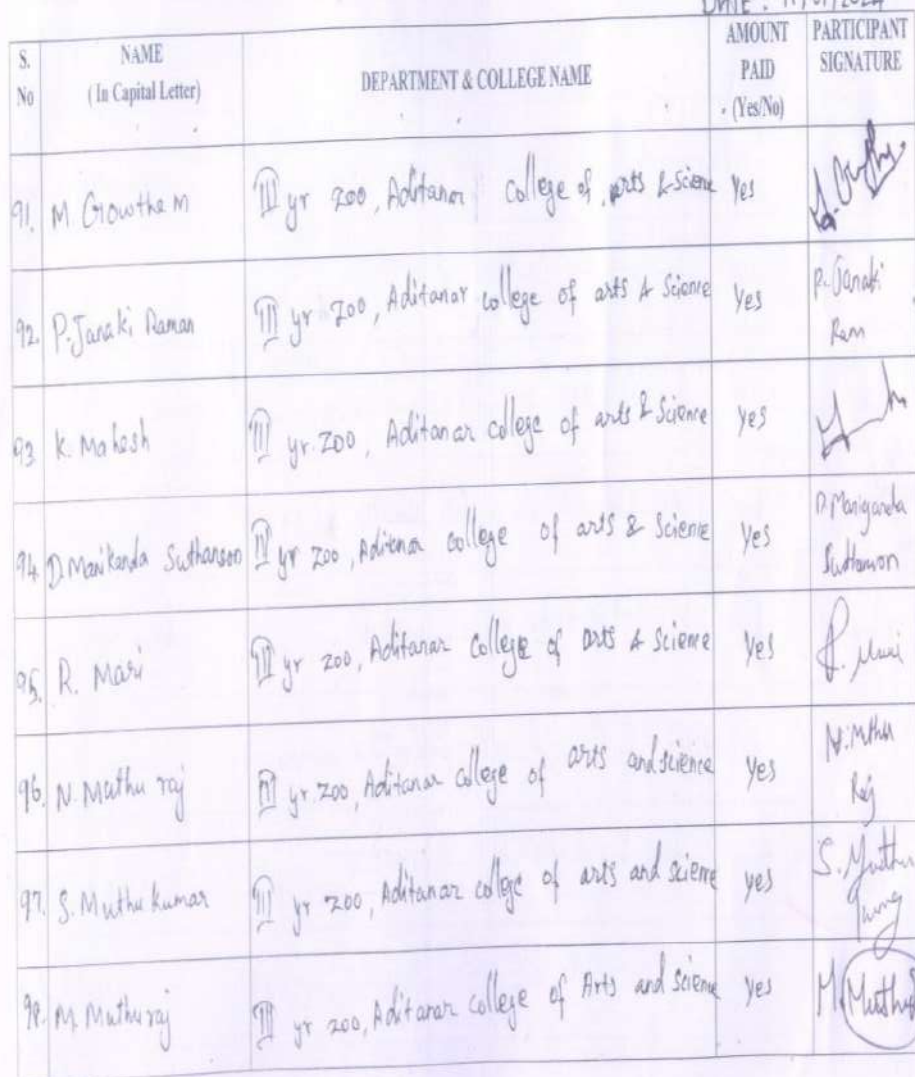 DATE : 11/01/2024
S. No
NAME (In Capital Letter)
DEPARTMENT & COLLEGE NAME
AMOUNT PAID (Yes/No)
PARTICIPANT SIGNATURE
91. M. Gowtham III yr zoo, Aditanar college of arts & Science Yes
92. P. Janaki Raman III yr zoo, Aditanar college of arts & Science Yes P. Janaki Ram
93 K. Mahesh III yr. zoo, Aditanar college of arts & Science Yes
94. D. Manikanda Suthanson III yr zoo, Aditanar college of arts & Science Yes D. Maniganda Suthanson
95. R. Mari III yr zoo, Aditanar college of arts & Science Yes R. Mari
96. N. Muthu raj III yr. zoo, Aditanar college of arts and science Yes N. Muthu Raj
97. S. Muthu kumar III yr zoo, Aditanar college of arts and science yes S. Muthu
98. M. Muthuraj III yr zoo, Aditanar college of Arts and science Yes M. Muthu